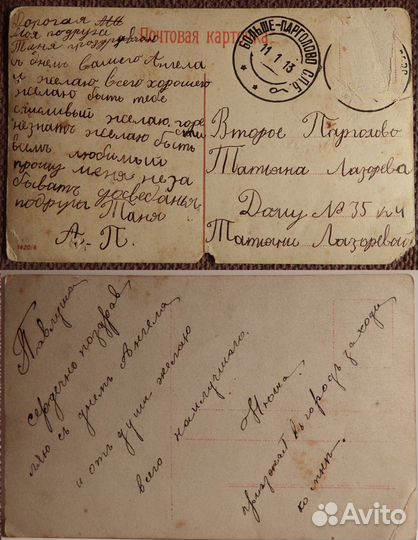 Дорогая
Моя подруга
Таня поздравляю
с днем Вашего Ангела
и желаю всего хорошего
желаю быть тебе
счисливый желаю горе
незнать желаю быть
всем любимый
прошу меня неза
бывать досведанья
подруга Таня
А. П.
1420/4
Почтовая карточка
БОЛЬШЕ-ПАРГОЛОВО СПБ
11.1.13
Второе Парголово
Татьяна Лазарева
Дому № 35
Татияни Лазаревой
Павлуша
сердечно поздрав
ляю съ днемъ Ангела
и отъ души желаю
всего наилучшаго.
Нюша.
приезжай въ городъ заходи
ко мне.
Avito